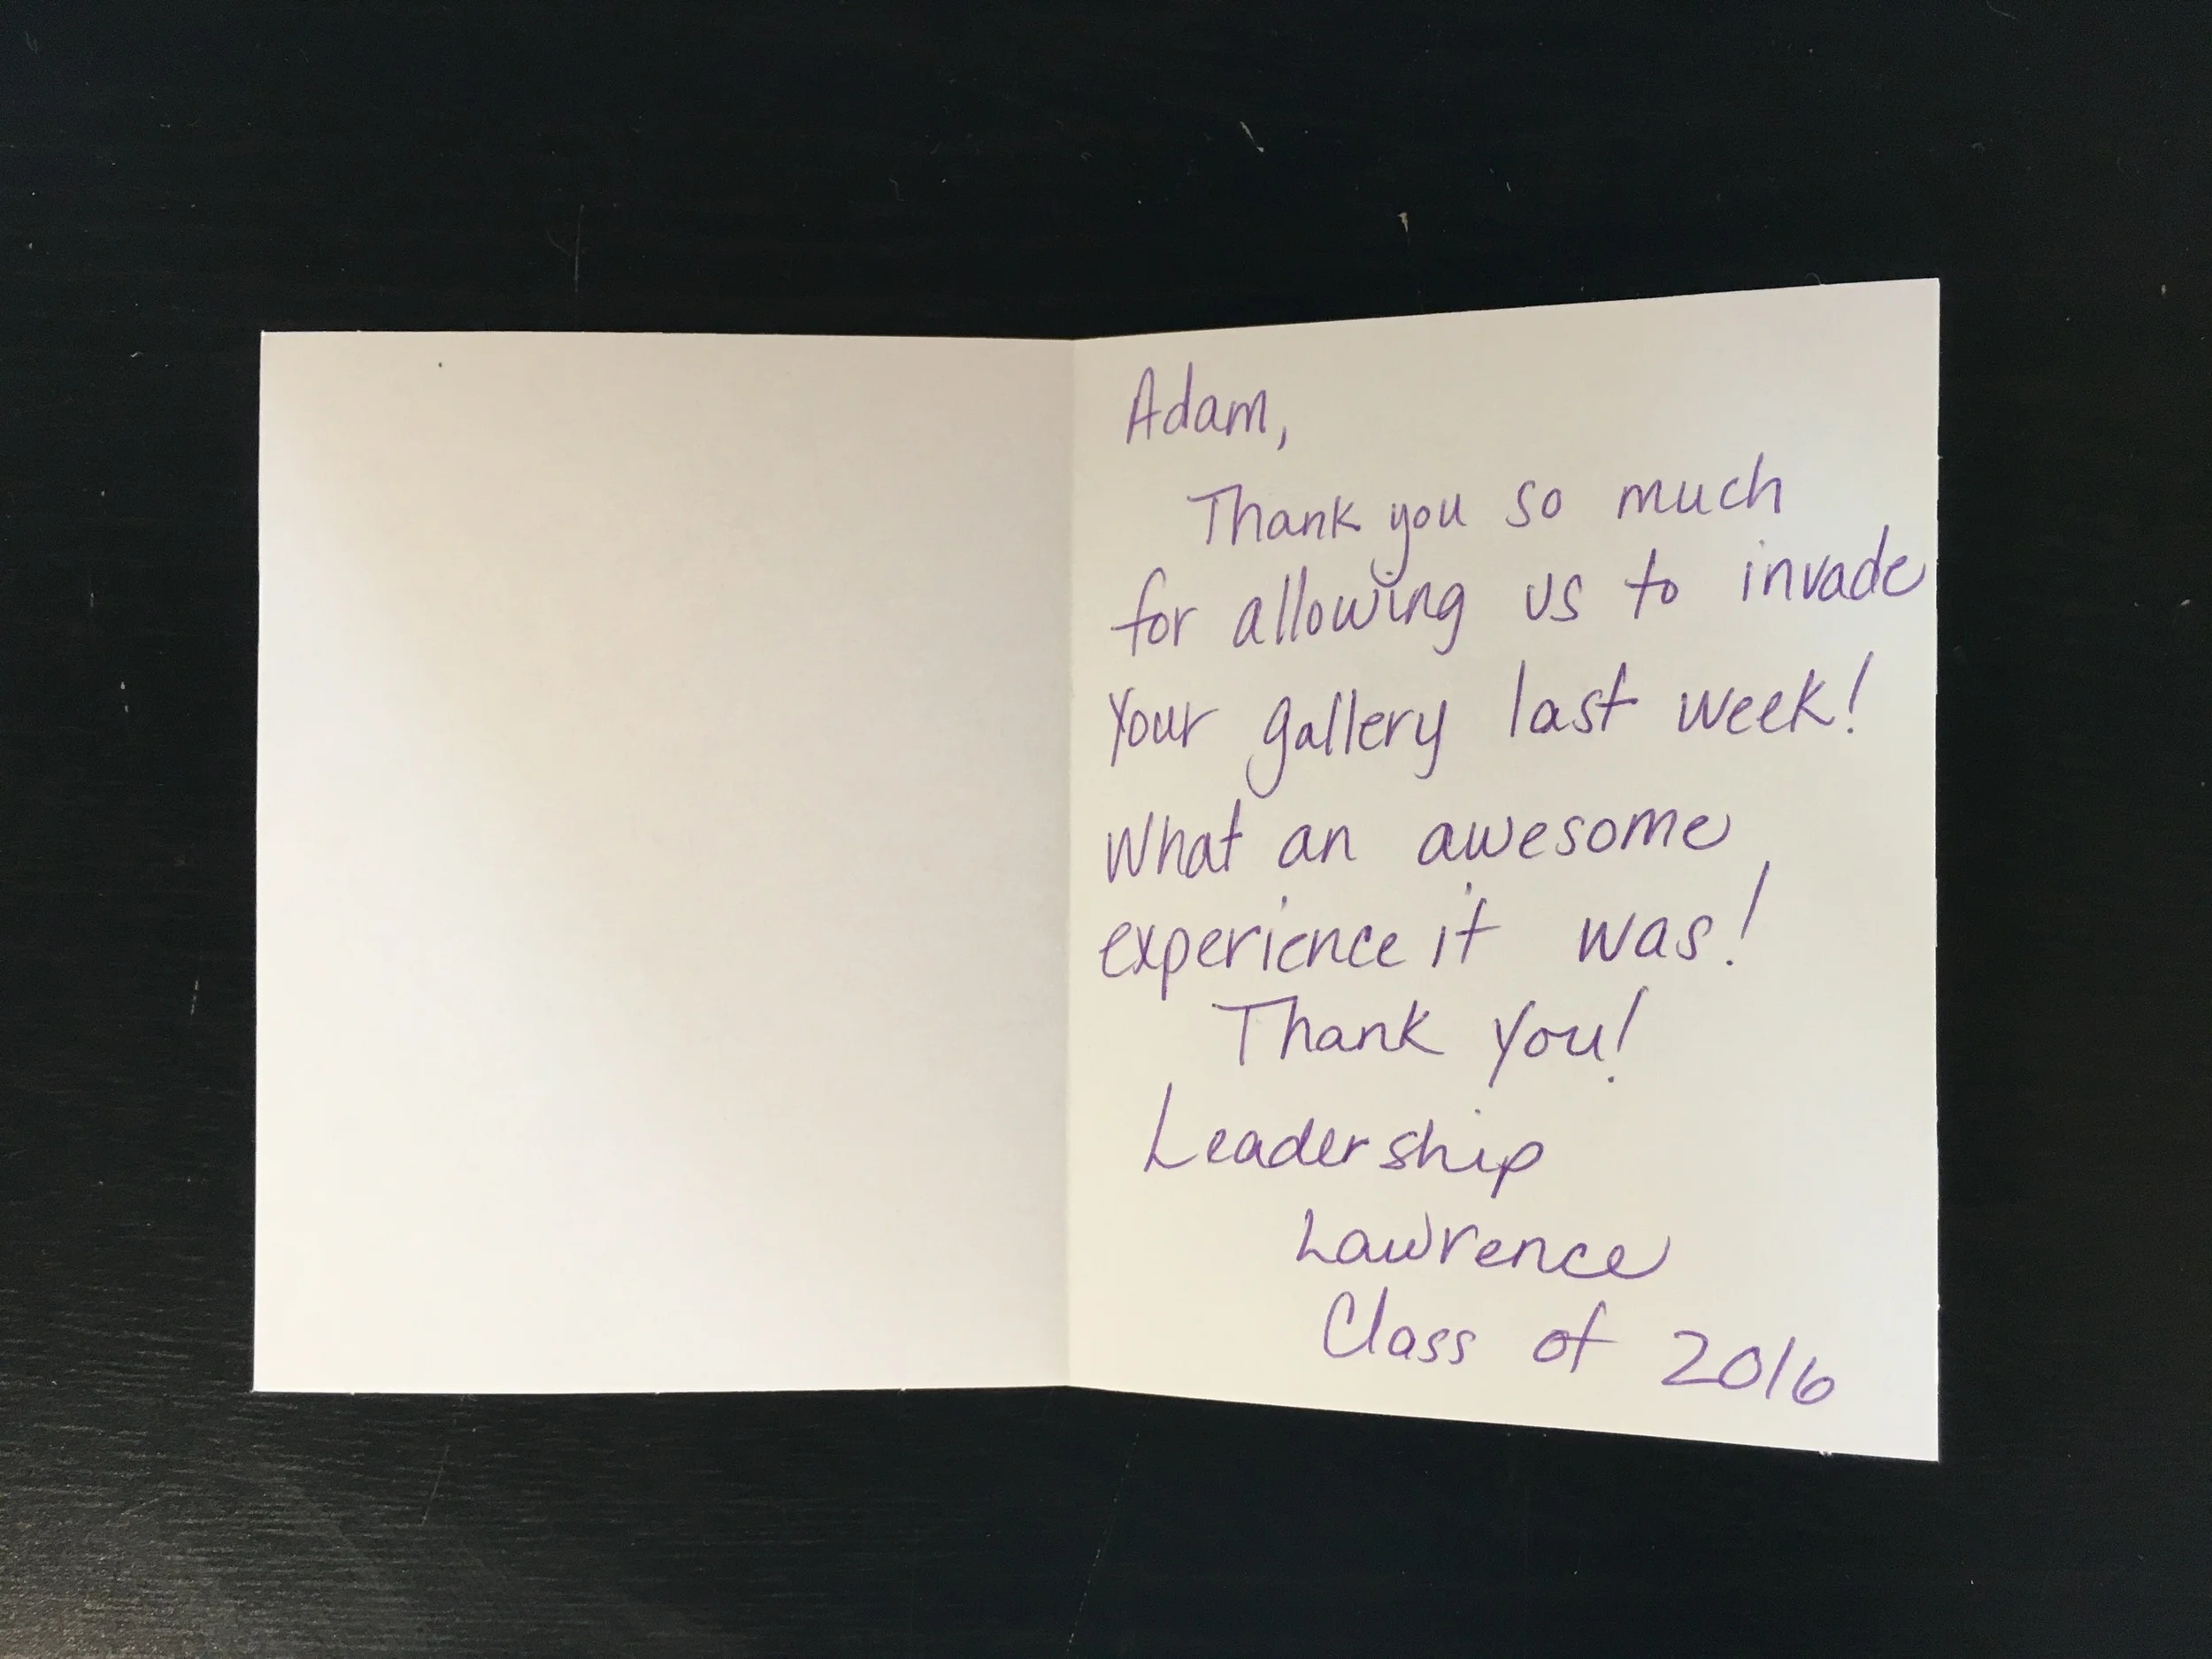 Adam,
Thank you so much
for allowing us to invade
your gallery last week!
What an awesome
experience it was!
Thank you!
Leadership
Lawrence
Class of 2016